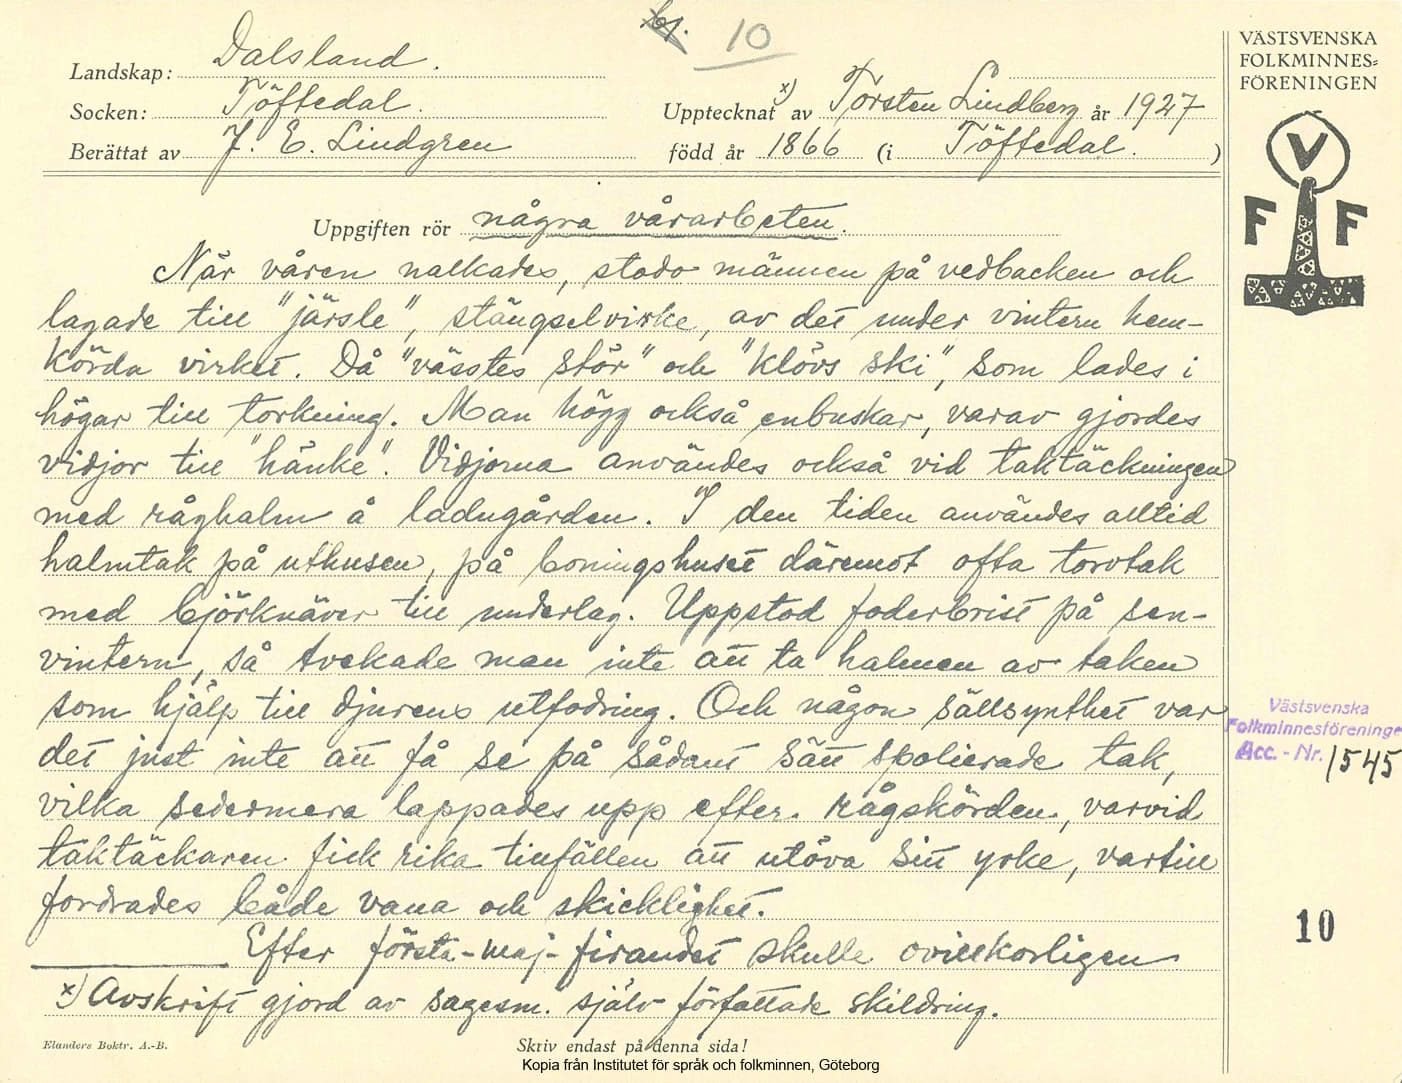 10
Landskap: Dalsland.
Socken: Töftedal.
Upptecknat x) av Torsten Lindberg år 1927
Berättat av J. E. Lindgren
född år 1866 (i Töftedal.)
Uppgiften rör några vårarbeten.
När våren nalkades, stodo männen på vedbacken och
lagade till "järsle", stängselvirke, av det under vintern hem-
körda virket. Då "vässtes stör" och "klövs ski", som lades i
högar till torkning. Man högg också enbuskar, varav gjordes
vidjor till "hänke". Vidjorna användes också vid taktäckningen
med råghalm å ladugården. I den tiden användes alltid
halmtak på uthusen, på boningshuset däremot ofta torvtak
med björknäver till underlag. Uppstod foderbrist på sen-
vintern, så tvekade man inte att ta halmen av taken
som hjälp till djurens utfodring. Och någon sällsynthet var
det just inte att få se på sådant sätt spolierade tak,
vilka sedermera lappades upp efter rågskörden, varvid
täktäckaren fick rika tillfällen att utöva sitt yrke, vartill
fordrades både vana och skicklighet.
Efter första-maj-firandet skulle ovillkorligen
x) Avskrift gjord av sagesm. själv författade skildring.
Elanders Boktr. A.-B.
Skriv endast på denna sida!
Kopia från Institutet för språk och folkminnen, Göteborg
VÄSTSVENSKA
FOLKMINNES=
FÖRENINGEN
V
F F
Västsvenska
Folkminnesföreninge
Acc. - Nr. 1545
10